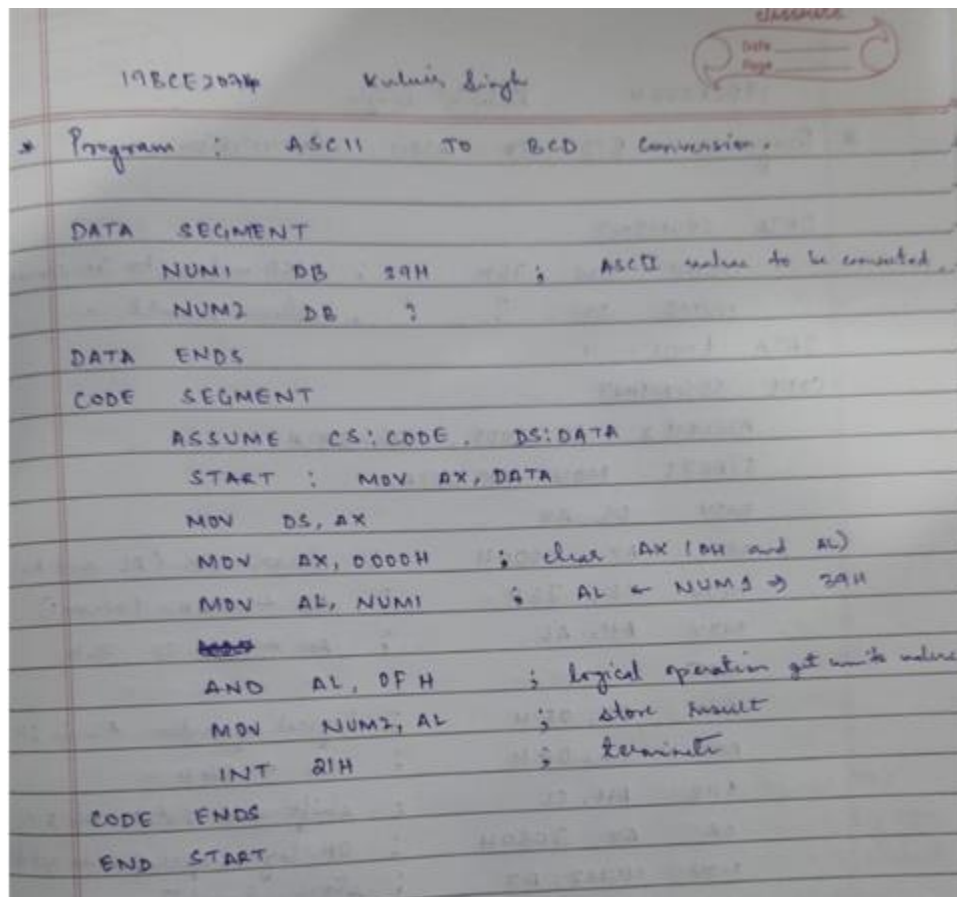 classmate
Date
Page
19BCE2074 Singh
* Program : ASCII TO BCD Conversion.
DATA SEGMENT
NUM1 DB 39H ; ASCII value to be converted.
NUM2 DB ?
DATA ENDS
CODE SEGMENT
ASSUME CS:CODE, DS:DATA
START : MOV AX, DATA
MOV DS, AX
MOV AX, 0000H ; clear AX (AH and AL)
MOV AL, NUM1 ; AL ← NUM1 → 39H
AND AL, 0FH ; logical operation get units value
MOV NUM2, AL ; store result
INT 21H ; terminate
CODE ENDS
END START